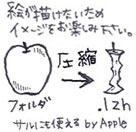 絵が描けないため
イメージをお楽しみ下さい。
圧縮
フォルダ
.12h
サルにも使える by Apple